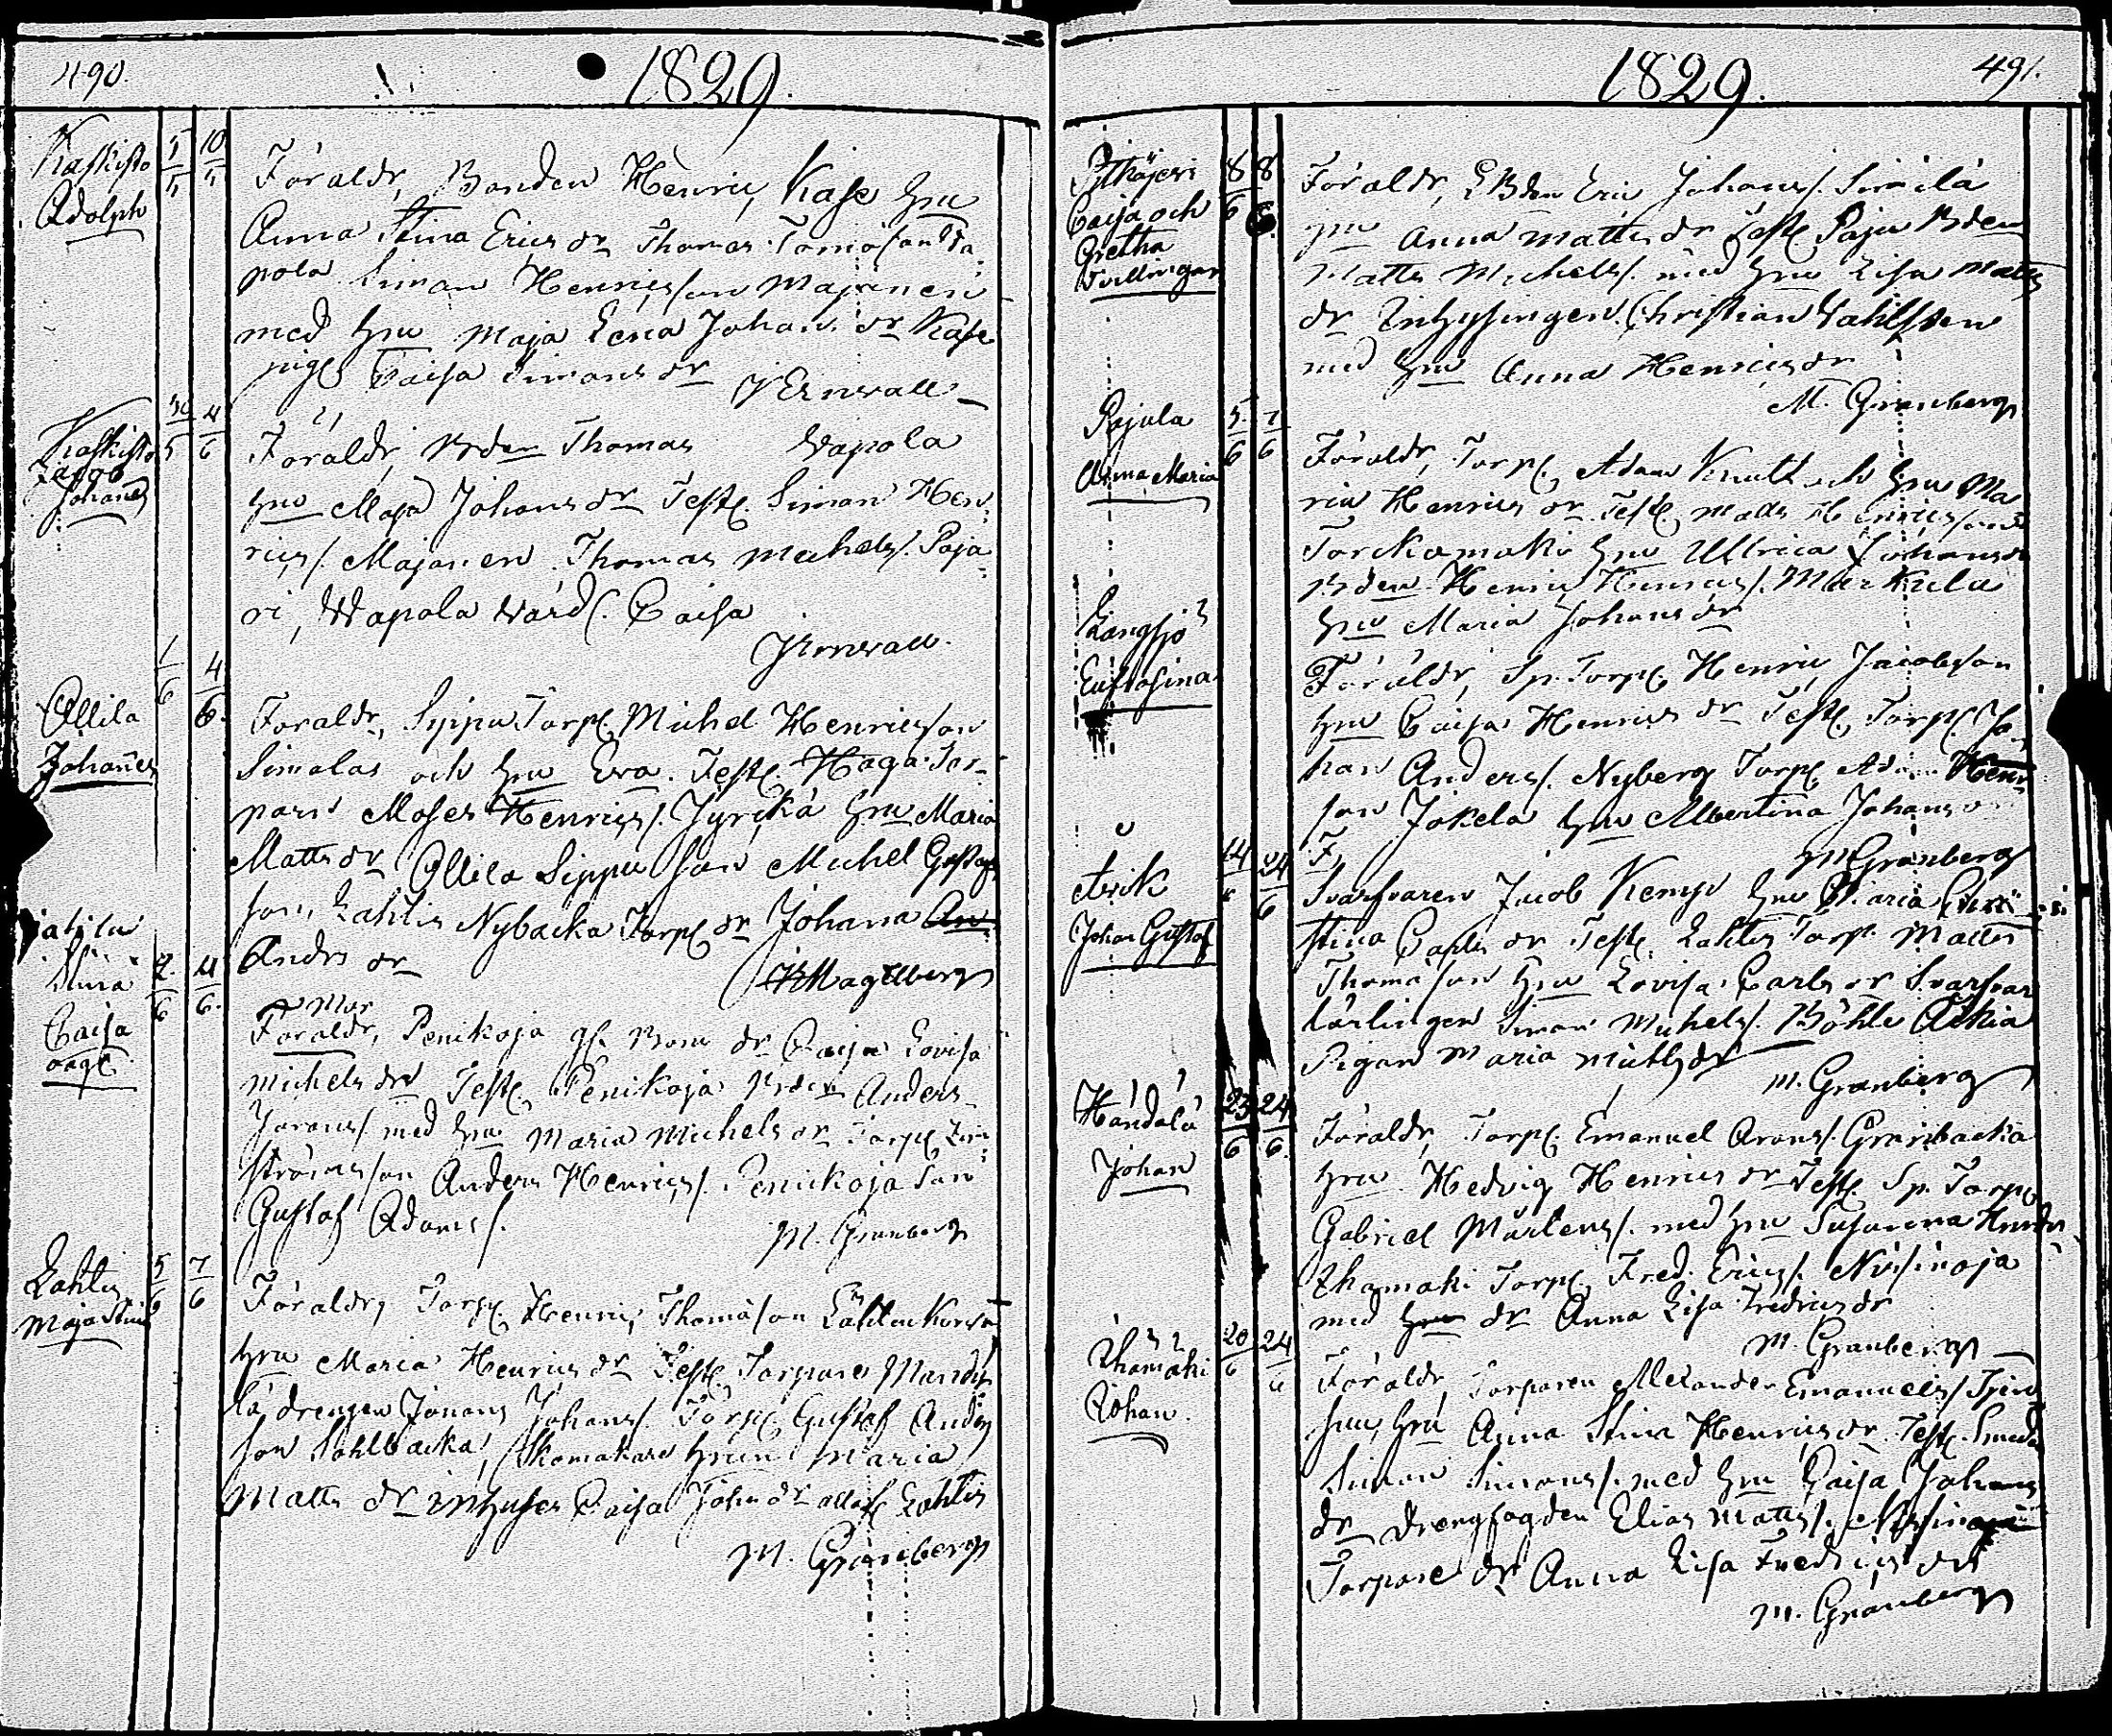 490.
1829.
Kaskisto
Adolph
5/5 10/5
Föräldr, Bonden Henric Kase hu
Anna Stina Erics dr Thomas Tomasson Wa
pola Siman Henricsson Majanen
med hu Maja Lena Johans dr Kase
pige Caisa Simons dr
Kaskisto
Jacob
Johannes
30/5 4/6
Föräldr, Bden Thomas Wapola
hu Maja Johans dr Test. Siman Hen
rics/. Majanen Thomas Michels/. Paja
ri, Wapola Caisa
Ollila
Johannes
1/6 4/6
Föräldr, Sippu Torp. Michel Henricsson
Simolas och hu Eva. Test. Haga Tor
paris Moses Henrics/. Jyrickä hu Maria
Matts dr Ollila Sippu son Michel Gustaf
son, Lahtis Nybacka Torp dr Johana An
Anders dr
Stina
Caisa
oägt.
2/6 4/6
Mor
Föräldr, Penikoja dr Caisa Lovisa
Michels dr Test. Penikoja Bden Anders
Jörans/. med hu Maria Michels dr Torp.
ströms son Anders Henrics/. Penikoja son
Gustaf Adams/.
M. Granberg
Lahtis
Maja Stina
5/6 7/6
Föräldr, Torp. Henric Thomasson Lahten
hu Maria Henrics dr Test. Torpare
lä drengen Jonans Johans/. Torp. Gustaf Anders
son Sohlbacka, Skomakare hun Maria
Matts dr inhyses Caisa Johs dr alla f. Lahtis
M. Granberg
1829.
491.
Pitkäjervi
Caisa och
Gretha
Tvillingar
8/6 8/6
Föräldr, Bden Eric Johans/. Simola
hu Anna Matts dr Test. Paju Bden
Matts Michels/. med hu Lisa Matts
dr Inhysingen Christian Dahlsten
med hu Anna Henrics dr
M. Granberg
Pajula
Anna Maria
5/6 7/6
Föräldr, Torp. Adam Knutt och hu Ma
ria Henrics dr Test. Matts Henricsson
Torckamäki hu Ullrica Johans dr
Bden Henric Henrics/. Markula
hu Maria Johans dr
Långsjö
Eufrosina
Föräldr, Sp. Torp. Henric Jacobsson
hu Caisa Henrics dr Test. Torp. Jo
han Anders/. Nyberg Torp. Adam Henr
son Jokela hu Albertina Johans dr
M Granberg
Arik
Johan Gustaf
14/6 24/6
F,
Svarfvaren Jacob Kempe hu Maria Chri
stina Carls dr Test. Lahtis Torp. Matts
Thomasson hu Lovisa Carls dr Svarfvar
lärlingen Siman Michels/. Böhle Arkia
Pigan Maria Matts dr
M. Granberg
Handala
Johan
23/6 24/6
Föräldr, Torp. Emanuel Arons/. Granbacka
hu Hedvig Henrics dr Test. Sp. Torp.
Gabriel Mårtens/. med hu Susanna Henrics
Ihamäki Torp. Fred. Erics/. Nisinoja
med hu dr Anna Lisa Fredrics dr
M. Granberg
Ihamäki
Johan.
20/6 24/6
Föräldr, Torparen Alexander Emanuels/.
hu Anna Stina Henrics dr Test. Smeden
Siman Simons/. med hu Caisa Johans
dr Drengfogden Elias Matts/.
Torpare dr Anna Lisa Fredrics dr
M. Granberg